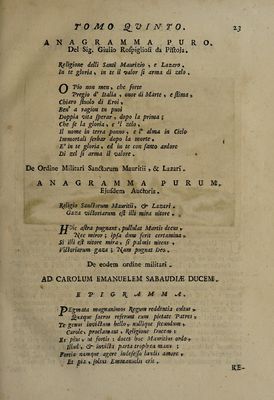 TOMO QVINTO. 23
ANAGRAMMA PURO.
Del Sig. Giulio Rospigliosi da Pistoja.
Religione delli Santi Maurizio, e Lazero.
In te gloria, in te il valor si arma di zelo.
O Pio non men, che forte
Pregio d' Italia, onor di Marte, e stima,
Chiaro stuolo di Eroi,
Ben' a ragion tu puoi
Doppia vita sperar, dopo la prima;
Che se la gloria, e 'l zelo,
Il nome in terra ponno, e l' alma in Cielo
Immortali serbar dopo la morte.
E' in te gloria, ed in te con santo ardore
Di zel si arma il valore.
De Ordine Militari Sanctorum Mauritii, & Lazari.
ANAGRAMMA PURUM.
Ejusdem Auctoris.
Religio Sanctorum Mauritii, & Lazari.
Gaza victoriarum est illi mira nitore.
HIc astra pugnant, pullulat Martis decus,
Nec miror; ipsa dum ferit certamina.
Si illi est nitore mira, si palmis nitens
Victoriarum gaza; Nam pugnat Deo.
De eodem ordine militari.
AD CAROLUM EMANUELEM SABAUDIÆ DUCEM.
EPIGRAMMA.
PEgmata magnanimos Regum redolentia cultus,
Quæque sacros referunt cum pietate Patres,
Te genus invictum bello, nullique secundum,
Carole, proclamant, Religione ducem.
Es pius, ut fortis: docet hoc Mauritius ordo
Illud, & invicta parta trophæa manu:
Fortia namque agere indefessa laudis amore,
Et pia, solius Emmanuelis erit.
RE-